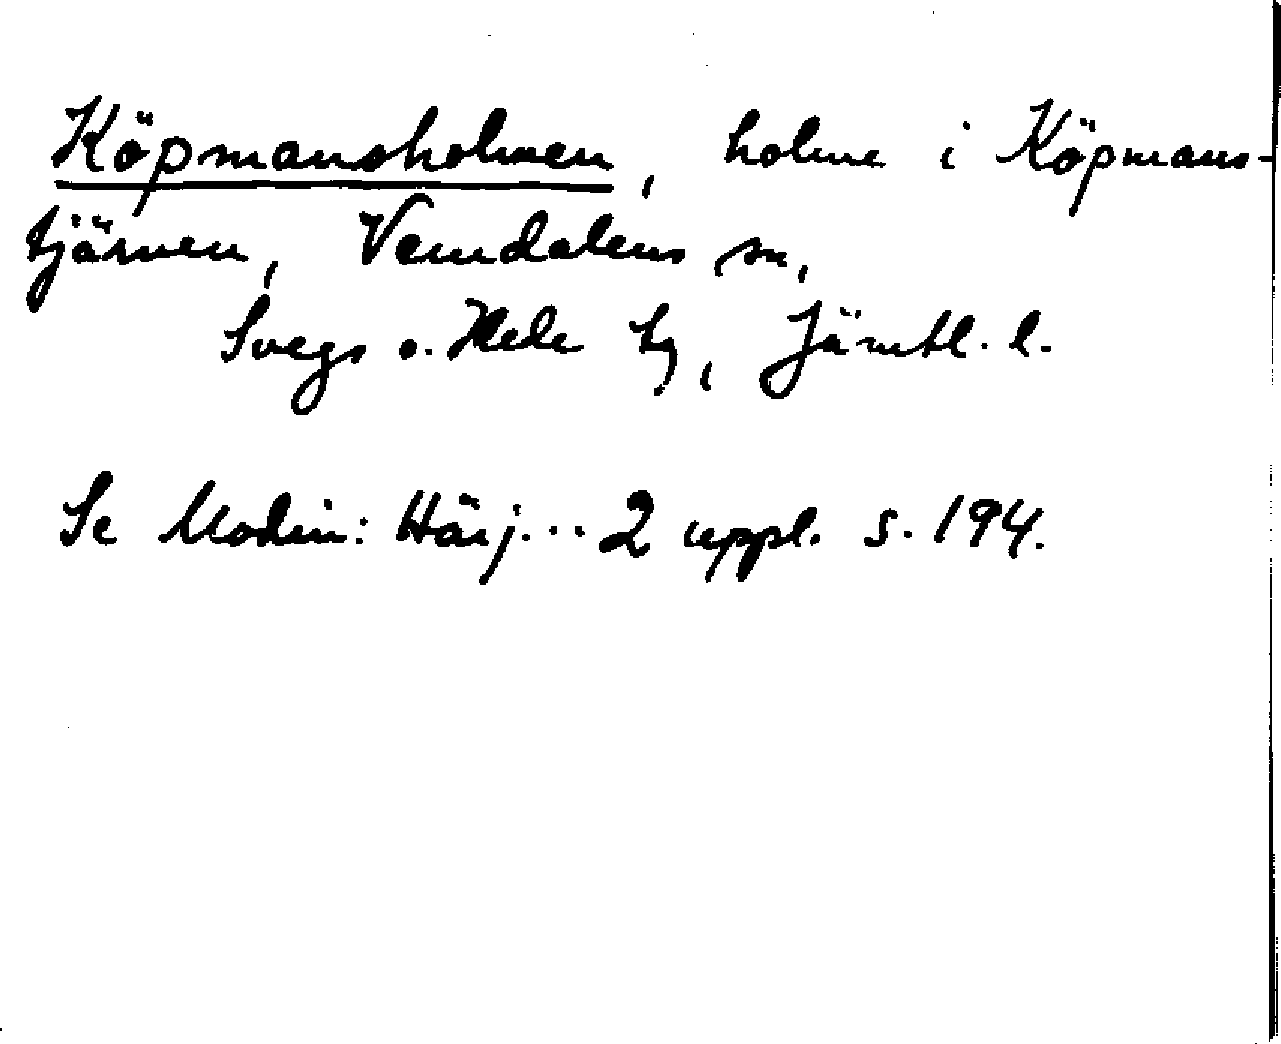 Köpmansholmen, holme i Köpmans-
tjärnen, Vemdalens sn,
Svegs o. Hede tg, Jämtl. l.
Se Modin: Härj... 2 uppl. s. 194.